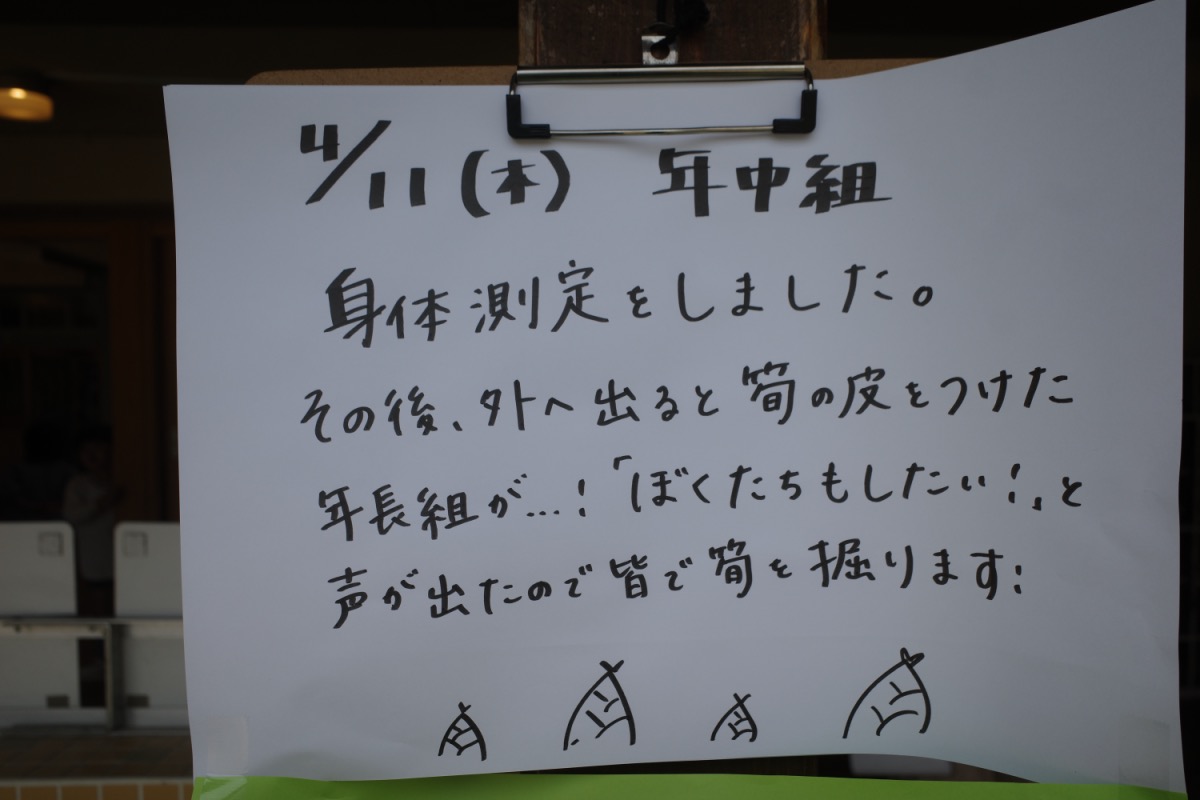 4/11(木) 年中組
身体測定をしました。
その後、外へ出ると筍の皮をつけた
年長組が…!「ぼくたちもしたい!」と
声が出たので皆で筍を掘ります: